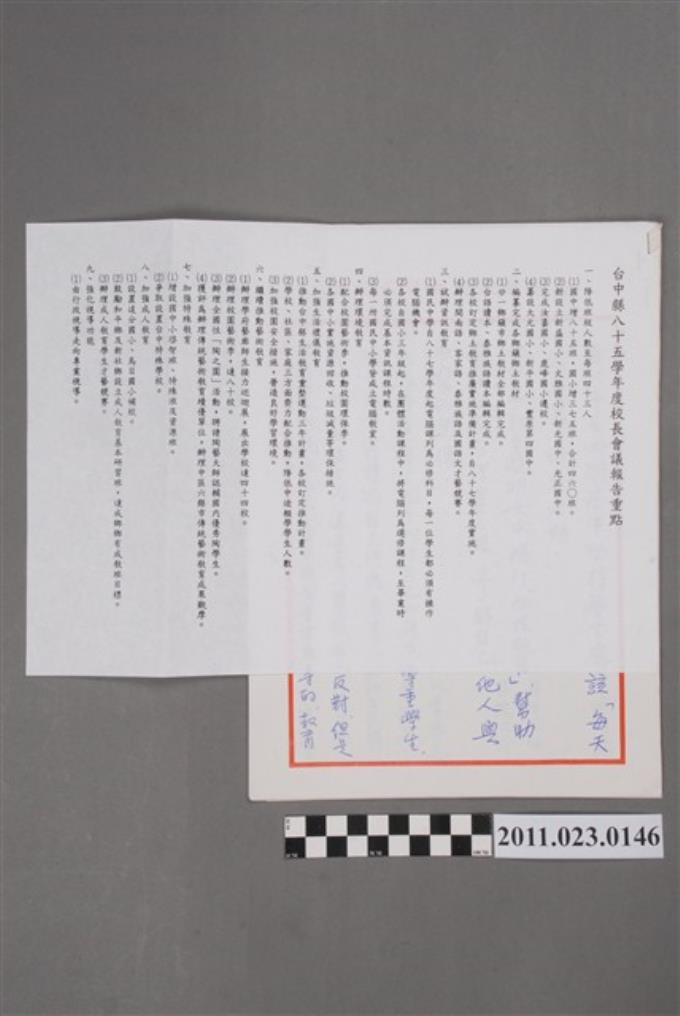 台中縣八十五學年度校長會議報告重點
一、降低班級人數至每班四十三人
⑴國中增八十五班，國小增三七五班，合計四六○班。
⑵新設立新盛國小、文雅國小、新光國中、光正國中。
⑶完成汝鎏國小、鹿峰國小遷校。
⑷籌設大元國小、新平國小、豐原第四國中。
二、編纂完成各鄉鎮鄉土教材
⑴廿一鄉鎮市鄉土教材全部編輯完成。
⑵台語讀本、泰雅族語讀本編輯完成。
⑶各校訂定鄉土教育推廣實施準備計畫，自八十七學年度實施。
⑷辦理閩南語、客家語、泰雅族語及國語文才藝競賽。
三、試辦資訊教育
⑴國民中學自八十七學年度起電腦課列為必修科目，每一位學生都必須有操作
電腦機會。
⑵各校自國小三年級起，在團體活動課程中，將電腦列為選修課程，至畢業時
必須完成基本資訊課程時數。
⑶每一所國民中小學皆成立電腦教室。
四、辦理環境教育
⑴配合校園藝術季，推動校園環保季。
⑵各國中小實施資源回收、垃圾減量等環保措施。
五、加強生活禮儀教育
⑴推動台中縣生活教育重整運動三年計畫，各校訂定推動計畫。
⑵學校、社區、家庭三方面齊力配合推動，降低中途輟學學生人數。
⑶加強校園安全措施，營造良好學習環境。
六、繼續推動藝術教育
⑴辦理學府藝廊師生接力巡迴展，展出學校達四十四校。
⑵辦理校園藝術季，達八十校。
⑶辦理全國性「陶之園」活動，聘請陶藝大師認輔國內優秀陶學生。
⑷獲評為辦理傳統藝術教育績優單位，辦理中區六縣市傳統藝術教育成果觀摩。
七、加強特殊教育
⑴增設國中小啟智班、特殊班及資源班。
⑵爭取設置台中特殊學校。
八、加強成人教育
⑴設置追分國小、烏日國小補校。
⑵鼓勵和平鄉及新社鄉設立成人教育基本研習班，達成鄉鄉有成教班目標。
⑶辦理成人教育學生才藝競賽。
九、強化視導功能
⑴由行政視導走向專業視導。
該「每天
」、幫助
他人與
尊重學生、
反對，但是
的，教育
2011.023.0146